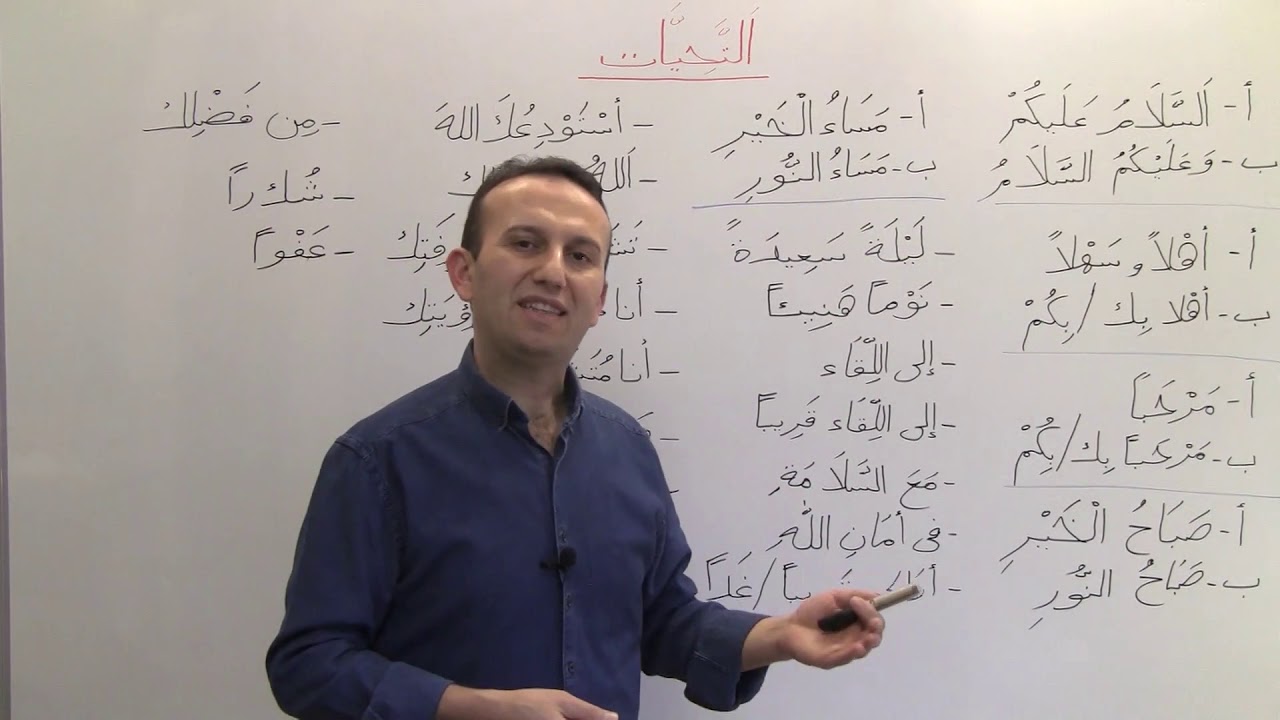 اَلتَّحِيَّات
أ- اَلسَّلَامُ عَلَيكُمْ
ب- وَعَلَيْكُمُ السَّلَامُ
أ- أهْلاً و سَهْلاً
ب- أهْلا بِك / بِكُمْ
أ- مَرْحَباً
ب- مَرْحَباً بِك/بِكُمْ
أ- صَبَاحُ الْخَيْرِ
ب- صَبَاحُ النُّورِ
أ- مَسَاءُ الْخَيْرِ
ب- مَسَاءُ النُّورِ
- لَيْلَةً سَعِيدَةً
- نَوْماً هَنِيئاً
- إلى اللِّقَاء
- إلى اللِّقَاء قَرِيباً
- مَعَ السَّلَامَةِ
- فى أمَانِ اللّٰهِ
- /غَداً
- أسْتَوْدِعُكَ اللهَ
-
-
- أنا
- أنا
- مِن فَضْلِك
- شُكْراً
- عَفْواً